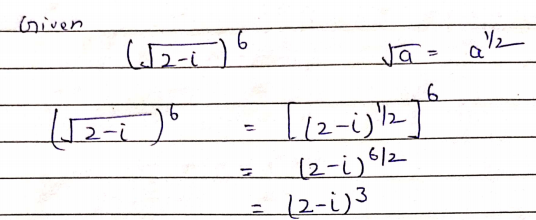 Given
(√2-i)^6 √a = a^1/2
(√2-i)^6 = [(2-i)^1/2]^6
= (2-i)^6/2
= (2-i)^3